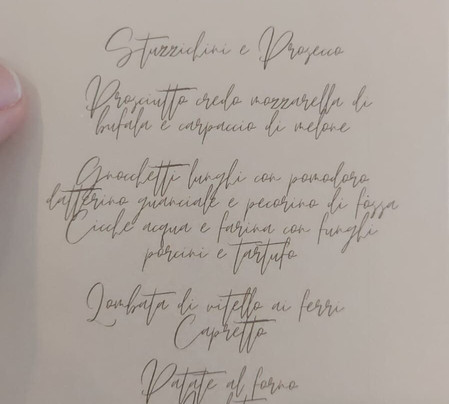 Stuzzichini e Prosecco
Prosciutto credo mozzarella di
bufala e carpaccio di melone
Gnocchetti lunghi con pomodoro
datterino guanciale e pecorino di fossa
Cicche acqua e farina con funghi
porcini e tartufo
Lombata di vitello ai ferri
Capretto
Patate al forno